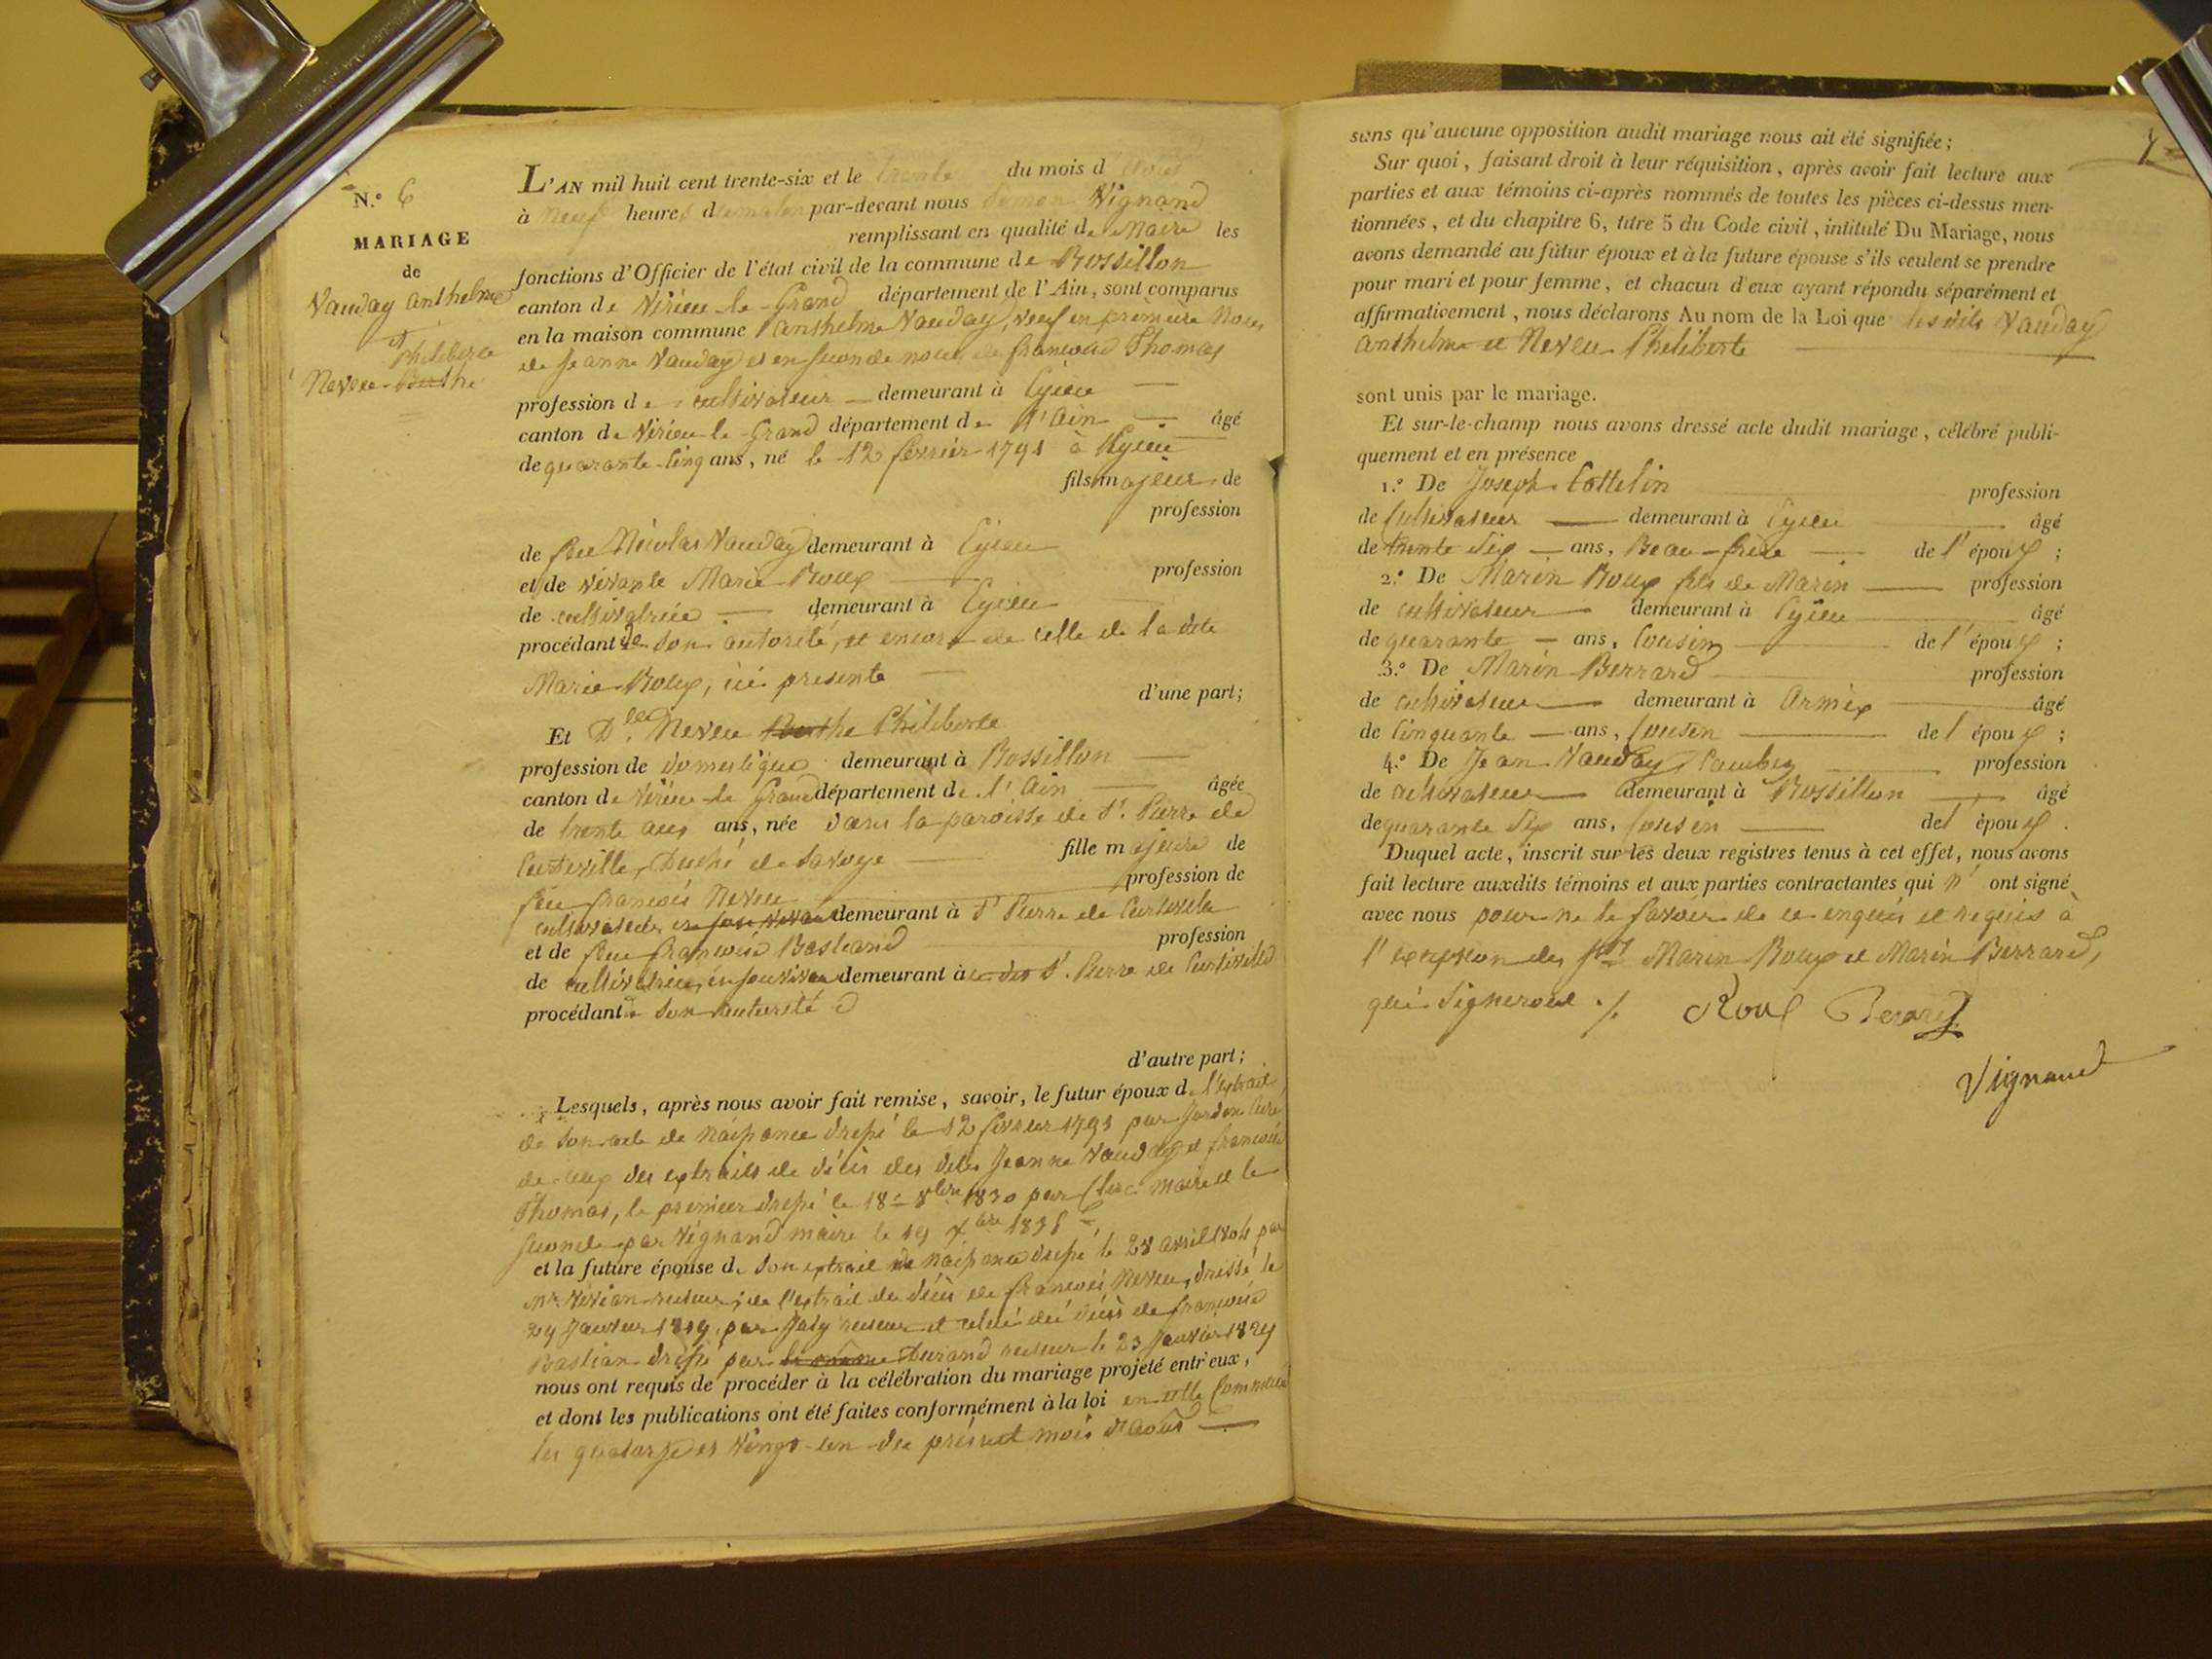 N.º 6
MARIAGE
de
Vauday Anthelme
et
Philiberte
Neveu Berthe
L'AN mil huit cent trente-six et le trente du mois d'août
à neuf heures du matin par-devant nous Simon Vignand
remplissant en qualité de Maire les
fonctions d'Officier de l'état civil de la commune de Rossillon
canton de Virieu-le-Grand département de l'Ain, sont comparus
en la maison commune Anthelme Vauday, veuf en première noces
de Jeanne Vauday et en seconde noces de françoise Thomas
profession de cultivateur demeurant à Eyieu
canton de Virieu-le-Grand département de l'Ain âgé
de quarante-cinq ans, né le 12 février 1791 à Eyieu
fils majeur de
profession
de feu Nicolas Vauday demeurant à Eyieu
et de vivante Marie Roux profession
de cultivatrice demeurant à Eyieu
procédant de son autorité, et encore de celle de la dite
Marie Roux, ici présente
d'une part;
Et D.lle Neveu Berthe Philiberte
profession de domestique demeurant à Rossillon
canton de Virieu-le Grand département de l'Ain âgée
de trente deux ans, née dans la paroisse de St. Pierre de
Curtille, Duché de Savoye fille majeure de
feu françois Neveu profession de
cultivateur en son vivant demeurant à St Pierre de Curtille
et de feu françoise Bastiand profession
de cultivatrice, en son vivant demeurant à St. Pierre de Curtille
procédant de son autorité
d'autre part;
Lesquels, après nous avoir fait remise, savoir, le futur époux de l'extrait
de son acte de naissance dressé le 12 février 1791 par Jordan Curé
de ceux des extraits de décès des dites Jeanne Vauday et françoise
Thomas, le premier dressé le 18 8bre 1830 par Clerc maire et le
second par Vignand maire le 19 Xbre 1835
et la future épouse de son extrait de naissance dressé le 28 avril 1804 par
Mr. Vivian recteur; de l'extrait de décès de françois Neveu, dressé le
29 Janvier 1819, par Jaly recteur et celui de décès de françoise
Bastian dressé par le même Durand recteur le 23 Janvier 1829
nous ont requis de procéder à la célébration du mariage projeté entr'eux,
et dont les publications ont été faites conformément à la loi en cette Commune
les quatorze et vingt-un du présent mois d'août
sans qu'aucune opposition audit mariage nous ait été signifiée;
Sur quoi, faisant droit à leur réquisition, après avoir fait lecture aux
parties et aux témoins ci-après nommés de toutes les pièces ci-dessus men-
tionnées, et du chapitre 6, titre 5 du Code civil, intitulé Du Mariage, nous
avons demandé au futur époux et à la future épouse s'ils veulent se prendre
pour mari et pour femme, et chacun d'eux ayant répondu séparément et
affirmativement, nous déclarons Au nom de la Loi que lesdits Vauday
Anthelme et Neveu Philiberte
sont unis par le mariage.
Et sur-le-champ nous avons dressé acte dudit mariage, célébré publi-
quement et en présence
1.º De Joseph Cottelin profession
de Cultivateur demeurant à Eyieu âgé
de trente six ans, Beau-frère de l'époux;
2.º De Marin Roux fils de Marin profession
de cultivateur demeurant à Eyieu âgé
de quarante ans, Cousin de l'époux;
3.º De Marin Berrard profession
de cultivateur demeurant à Armix âgé
de Cinquante ans, Cousin de l'époux;
4.º De Jean Vauday profession
de cultivateur demeurant à Rossillon âgé
de quarante six ans, Cousin de l'époux.
Duquel acte, inscrit sur les deux registres tenus à cet effet, nous avons
fait lecture auxdits témoins et aux parties contractantes qui n'ont signé
avec nous pour ne le savoir de ce enquis et requis à
l'exception des srs Marin Roux et Marin Berrard,
qui signeront ./.
Roux Berard
Vignand